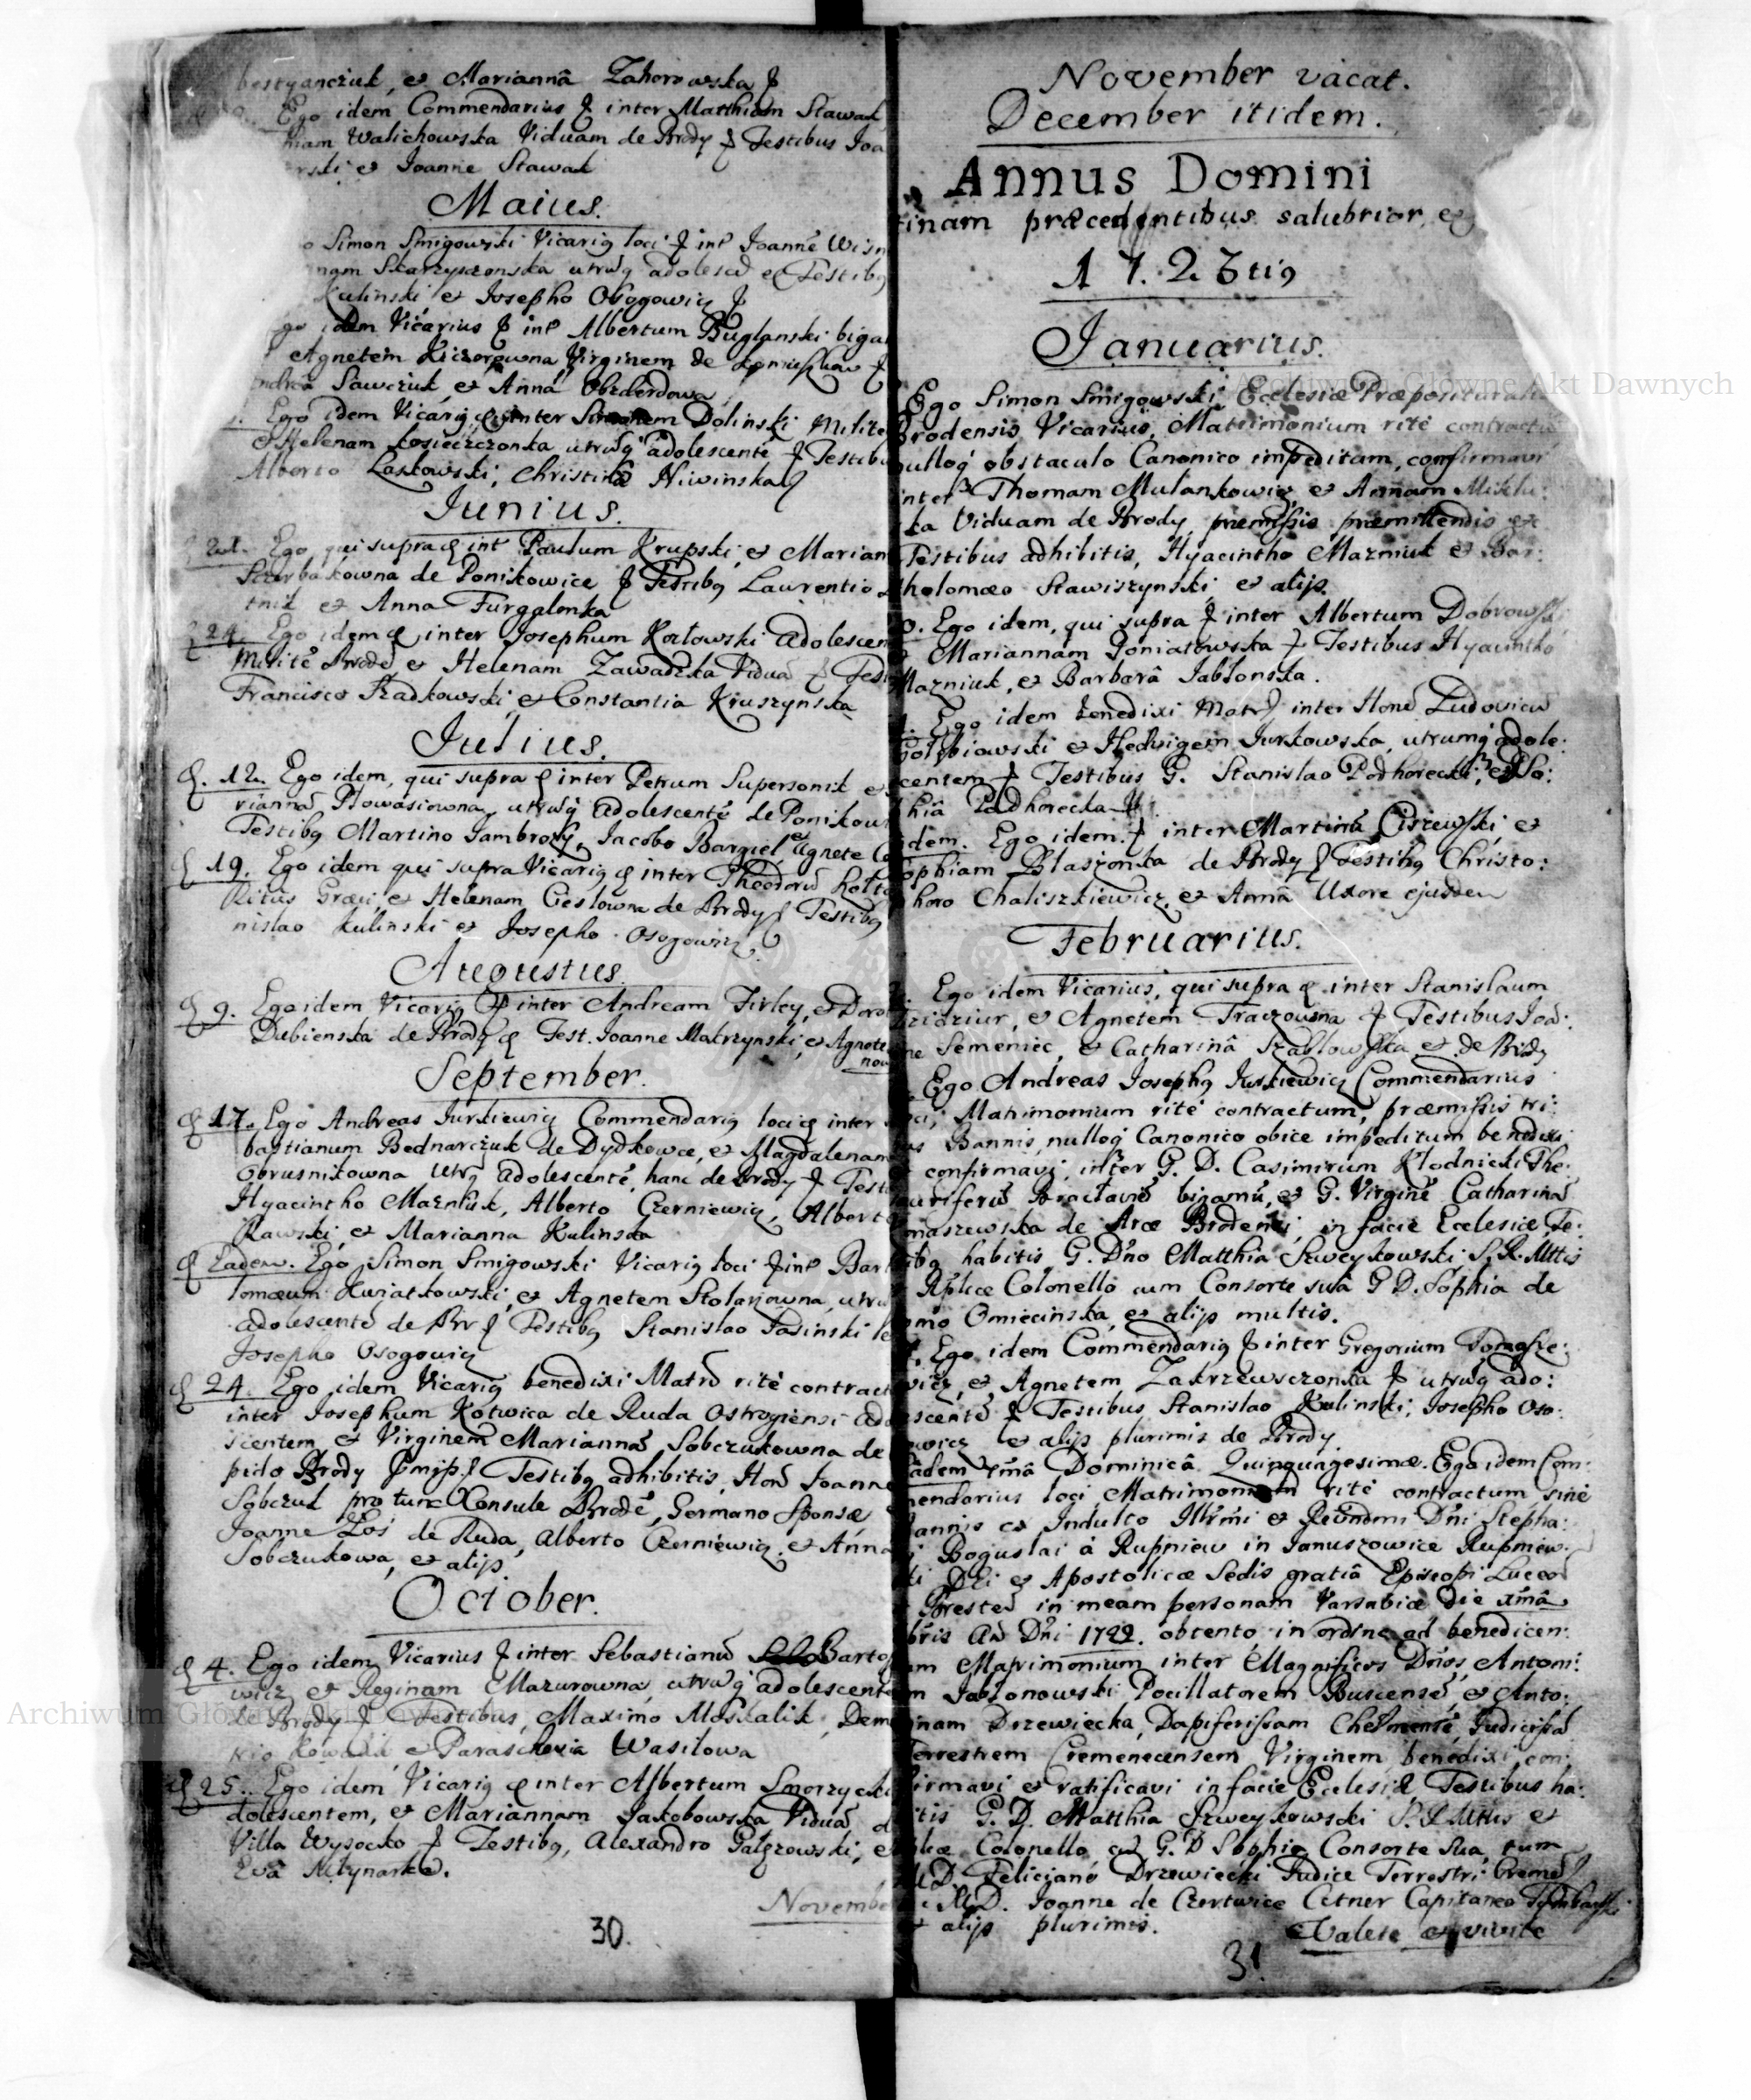 bestyanczuk, et Mariannâ Zahorowska
Ego idem Commendarius inter Matthiam Stawak
Walichowska Viduam de Brody Testibus Joa
et Joanne Stawak
Maius.
Simon Smigowski Vicariq loci int Joanné Wisn
Skarzysczonska utrusq adolescé et Testibq
Kulinski et Josepho Osogowicz
idem Vicarius int Albertum Buglanski biga
Agnetem Virginem de
Sawczuk et Annâ
Ego idem Vicariq inter Simonem Dolinski Milite
et Helenam utrusq adolescenté Testibu
Alberto Laskowski, Christinâ Niwinska
Junius.
21. Ego, qui supra int Paulum Krupski, et Marian
Szczerbakowna de Ponikowice Testibq Laurentio
tnik et Anna Furgalonka
24. Ego idem inter Josephum Kozlowski adolescen
Milité Brodé et Helenam Zawadzka Viduâ Testi
Francisco Szadkowski et Constantia Kruszynska
Julius.
12. Ego idem, qui supra inter Petrum Supersonik et
riannâ utrusq adolescenté de Ponikow
Testibq Martino Jambrozy, Jacobo Bargiel, et Agnete
19. Ego idem qui supra Vicariq inter Theodorû
Ritus Græci, et Helenam Cieslowna de Brody Testibq
nislao Kulinski et Josepho Osogowicz
Augustus
9. Ego idem Vicariq inter Andream Firley, et Doro
Dubienska de Brody Test. Joanne Makrzynski, et Agnete
now
September.
17. Ego Andreas Jurkiewicz Commendariq loci inter
bastianum Bednarczuk de Dydkowce, et Magdalenam
Obrusnikowna utrq adolescenté, hanc de Brody Testi
Hyacintho Mazniuk, Alberto Czerniewicz, Alberto
Rawski, et Marianna Kulinska
Eadem. Ego Simon Smigowski Vicariq loci int Bar
lomæum Kwiatkowski, et Agnetem Stolarzowna, utru
adolescenté de Br Testibq Stanislao Jasinski
Josepho Osogowicz
24. Ego idem Vicariq benedixi Matrô rité contract
inter Josephum Kotwica de Ruda Ostrogiensi ado
scentem, et Virginem Mariannâ Sobczukowna de
pido Brody Testibq adhibitis, Hon Joanne
Sobczuk pro tunc Consule Brodé, Germano Sponsæ
Joanne Łoś de Ruda, Alberto Czerniewicz et Anna
Sobczukowa, et alijs.
October.
4. Ego idem Vicarius inter Sebastianû Barto
wicz et Reginam Mazurowna, utrusq adolescenté
de Brody Testibus, Maximo Moskalik, Deme
trio Kowalik et Paraschevia Wasilowa
25. Ego idem Vicariq inter Albertum Smorzycki
dolescentem, et Mariannam Jakobowska Viduâ, d
Villa Wysocko Testibq, Alexandro Galęzowski, e
Evâ Mlynarka.
Novembe
30.
November vacat.
December itidem.
Annus Domini
tinam præcedentibus salubrior, et
1723tiq
Januarius.
Ego Simon Smigowski Ecclesiæ Præposituralis
Brodensis Vicarius, Matrimonium rité contractu
nulloq obstaculo Canonico impeditam, confirmavi
inter Thomam Mulankowicz, et Annam Miklu:
ka Viduam de Brody, præmissis præmittendis et
Testibus adhibitis, Hyacintho Mazniuk et Bar:
tholomæo Stawiszynski, et alijs.
0. Ego idem, qui supra inter Albertum Dobrowski
Mariannam Poniatowska Testibus Hyacintho
Mazniuk, et Barbarâ Jablonska.
Ego idem benedixi Matr inter Hon Ludovicû
Golębiowski et Hedvigem Jurkowska, utrumq adole:
scentem Testibus G. Stanislao Podhorecki, et So:
phiâ Podhorecka
idem. Ego idem inter Martinû Ciszewski, et
ophiam Blaszonka de Brody Testibq Christo:
phoro Chaliszkiewicz, et Annâ Uxore ejusdem
Februarius.
Ego idem Vicarius, qui supra inter Stanislaum
et Agnetem Traczowna Testibus Joâ:
ne Semeniec, et Catharinâ Szablowska et de Brody
Ego Andreas Josephq Jurkiewicz Commendarius
loci, Matrimonium rité contractum, præmissis tri:
bus Bannis, nulloq Canonico obice impeditum benedixi
confirmavi, inter G. D. Casimirum Kłodnicki The:
sauriferû Braclaviê bigamû, et G. Virginê Catharinâ
maszewska de Arce Brodensi, in facie Ecclesiæ, Te:
stibq habitis, G. Dno Matthia Szweykowski S. R. Mttis
Rplicæ Colonello cum Consorte suâ G D. Sophia de
omo Omiecinska, et alijs multis.
Ego idem Commendariq inter Gregorium Tomasze:
wicz, et Agnetem Zakrzewsczonka utrusq ado:
lescentê Testibus Stanislao Kulinski, Josepho Oso:
gowicz et alijs plurimis de Brody.
Eadem Dominicâ Quinquagesimæ. Ego idem Com:
mendarius loci Matrimonium rité contractum sine
Bannis ex Indulto Illrmi et Revndmi Dni Stepha:
ni Boguslai à Rupniew in Januszowice Rupniew:
ski Dei et Apostolicæ Sedis gratiâ Episcopi Luceor
Bresten in meam personam Varsaviæ die xmâ
bris Aô Dni 1722. obtento, in ordine ad benedicen:
dum Matrimonium inter Magnificos Dnos, Antoni:
um Jablonowski Pocillatorem Buscensê, et Anto:
ninam Drzewiecka, Dapiferissam Chelmensê, Judicissâ
Terrestrem Cremenecensem, Virginem, benedixi, con:
firmavi et ratificavi in facie Ecclesiæ Testibus ha:
bitis G. D. Matthia Szweykowski S. R. Mttis et
plicæ Colonello, cû G. D Sophia Consorte sua, tum
M D. Felicianô Drzewiecki Judice Terrestri Cremeê
MD. Joanne de Czertwice Cetner Capitaneo
et alijs plurimis.
Valete et vivite
31.
Archiwum Główne Akt Dawnych
Archiwum Główne Akt Dawnych